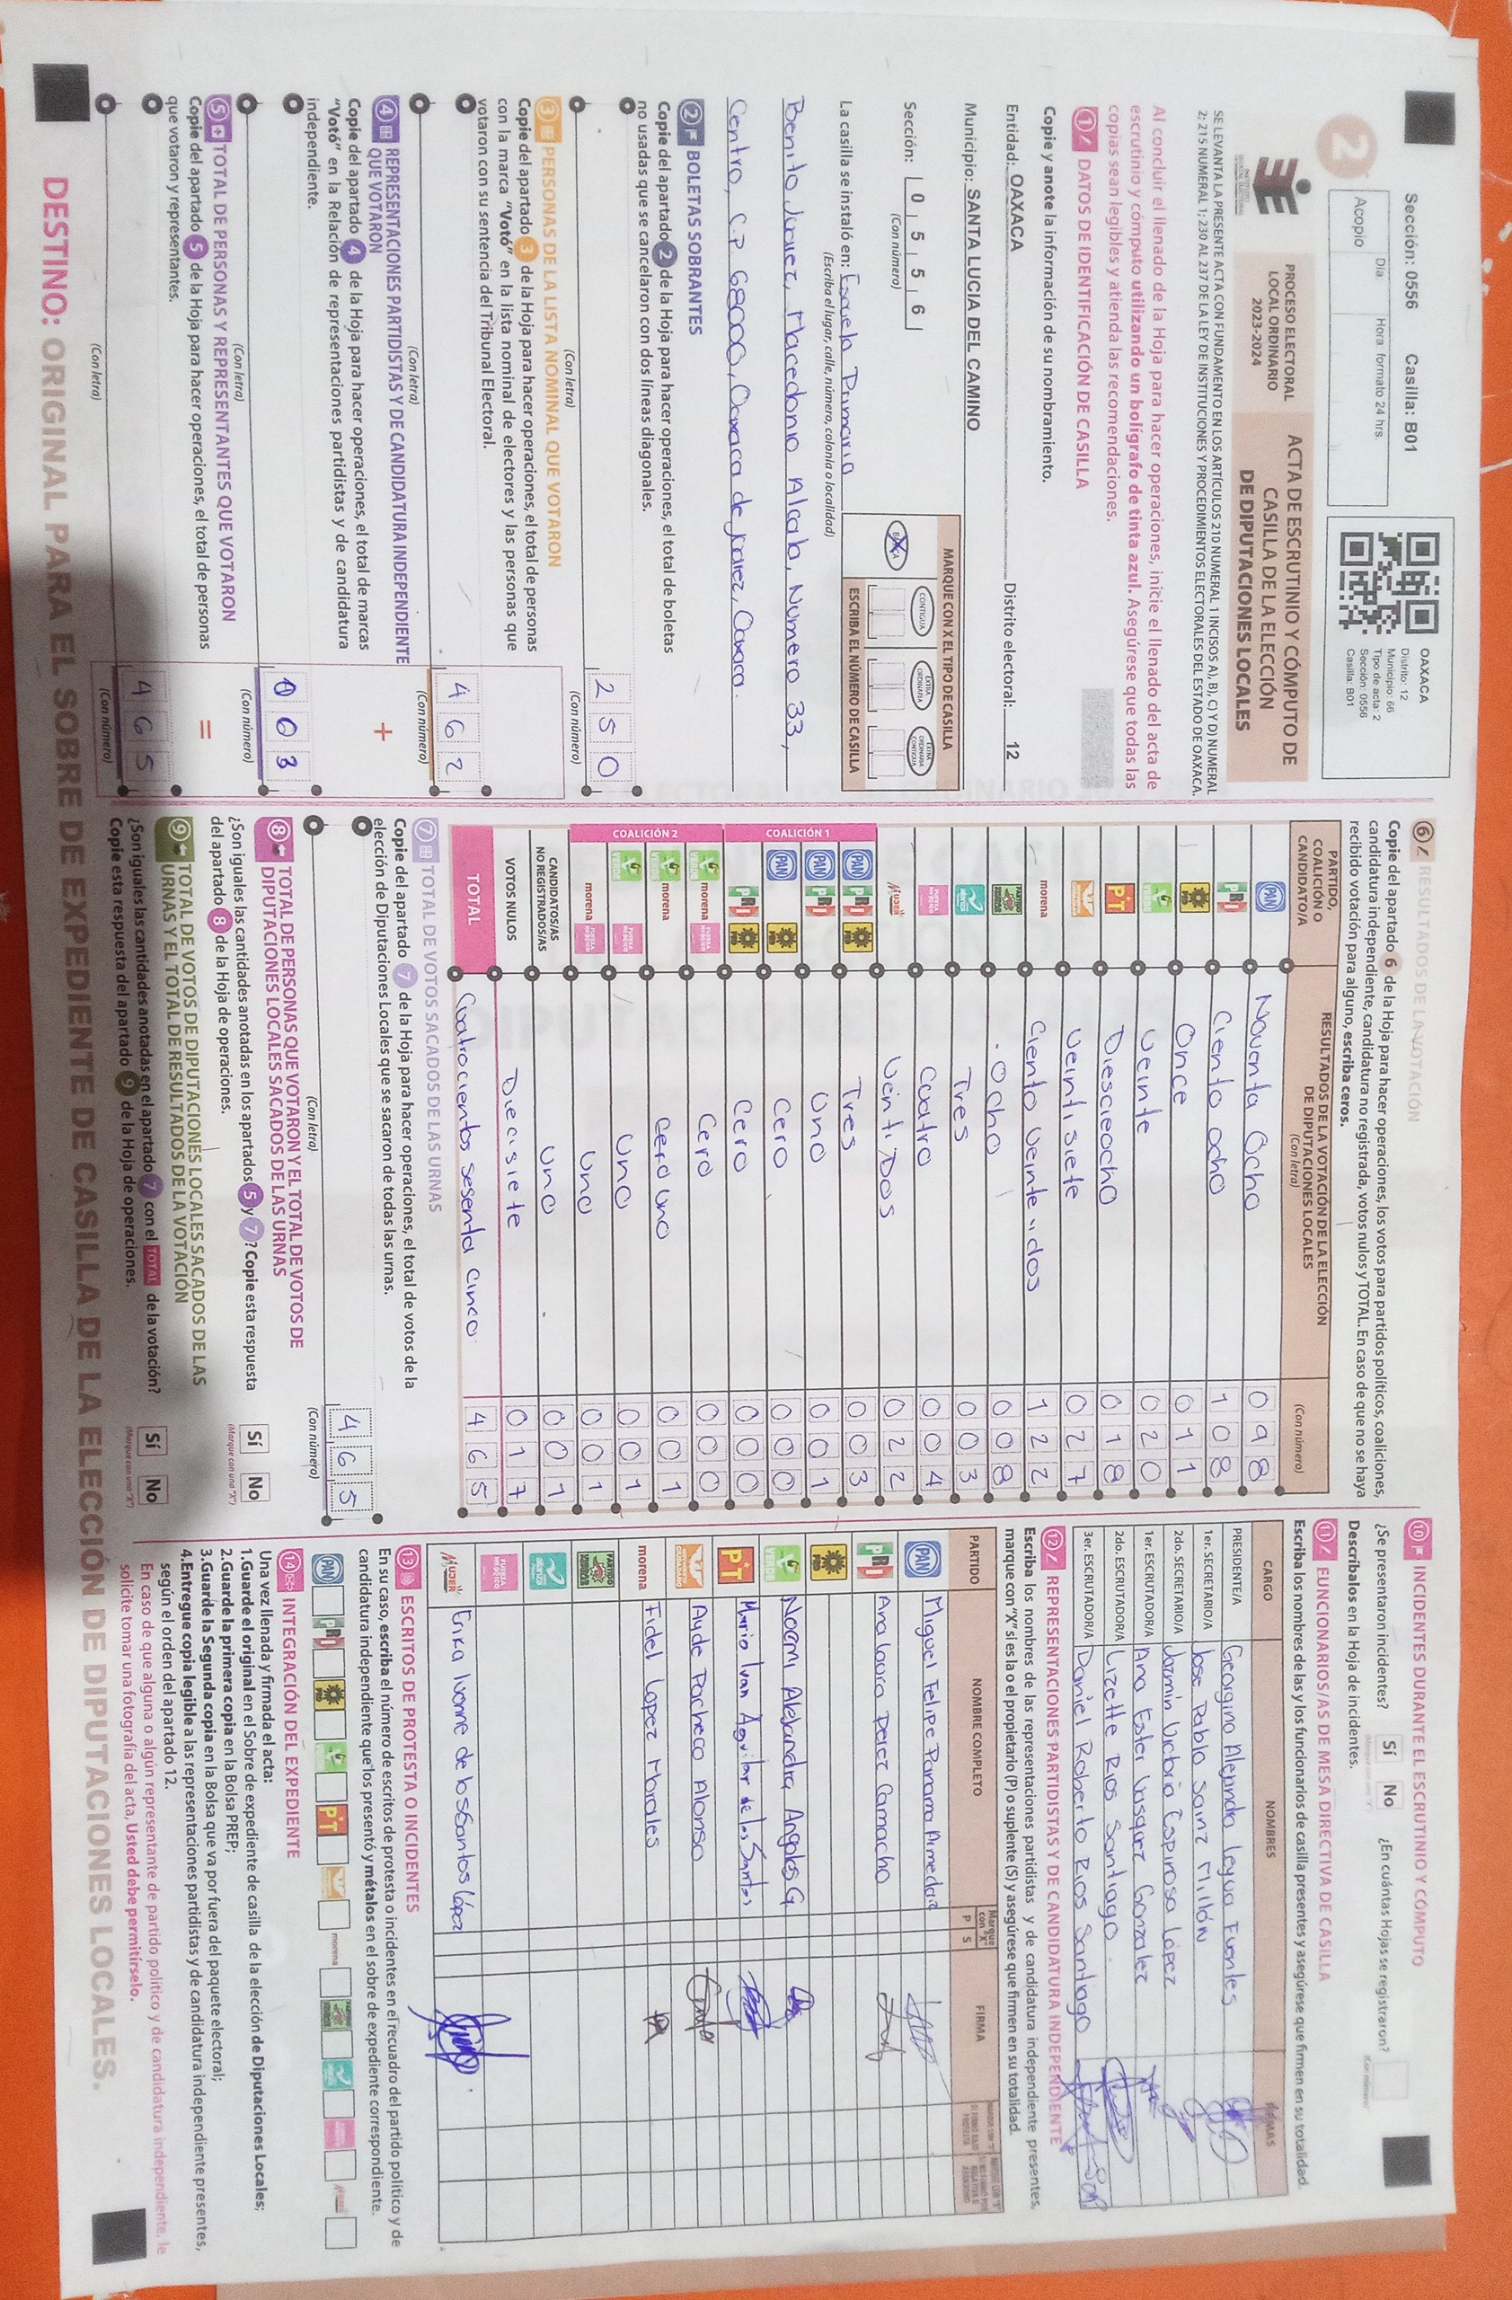 Sección: 0556 Casilla: B01
Día Hora formato 24 hrs.
Acopio
OAXACA
Distrito: 12
Municipio: 66
Tipo de acta: 2
Sección: 0556
Casilla: B01
2
PROCESO ELECTORAL
LOCAL ORDINARIO
2023-2024
ACTA DE ESCRUTINIO Y CÓMPUTO DE
CASILLA DE LA ELECCIÓN
DE DIPUTACIONES LOCALES
SE LEVANTA LA PRESENTE ACTA CON FUNDAMENTO EN LOS ARTÍCULOS 210 NUMERAL 1 INCISOS A), B), C) Y D) NUMERAL
2; 215 NUMERAL 1; 230 AL 237 DE LA LEY DE INSTITUCIONES Y PROCEDIMIENTOS ELECTORALES DEL ESTADO DE OAXACA.
Al concluir el llenado de la Hoja para hacer operaciones, inicie el llenado del acta de
escrutinio y cómputo utilizando un bolígrafo de tinta azul. Asegúrese que todas las
copias sean legibles y atienda las recomendaciones.
1 DATOS DE IDENTIFICACIÓN DE CASILLA
Copie y anote la información de su nombramiento.
Entidad: OAXACA Distrito electoral: 12
Municipio: SANTA LUCIA DEL CAMINO
Sección: 0 5 5 6
(Con número)
MARQUE CON X EL TIPO DE CASILLA
CONTIGUA
EXTRA ORDINARIA
EXTRA ORDINARIA CONTIGUA
ESCRIBA EL NÚMERO DE CASILLA
La casilla se instaló en: Escuela Primaria
(Escriba el lugar, calle, número, colonia o localidad)
Benito Juárez, Macedonio Alcala, Numero 33,
Centro, C.P 68000, Oaxaca de Juarez, Oaxaca.
2 BOLETAS SOBRANTES
Copie del apartado 2 de la Hoja para hacer operaciones, el total de boletas
no usadas que se cancelaron con dos líneas diagonales.
2 5 0
(Con letra) (Con número)
3 PERSONAS DE LA LISTA NOMINAL QUE VOTARON
Copie del apartado 3 de la Hoja para hacer operaciones, el total de personas
con la marca "Votó" en la lista nominal de electores y las personas que
votaron con su sentencia del Tribunal Electoral.
4 6 2
(Con letra) (Con número)
4 REPRESENTACIONES PARTIDISTAS Y DE CANDIDATURA INDEPENDIENTE
QUE VOTARON
+
Copie del apartado 4 de la Hoja para hacer operaciones, el total de marcas
"Votó" en la Relación de representaciones partidistas y de candidatura
independiente.
0 0 3
(Con letra) (Con número)
5 TOTAL DE PERSONAS Y REPRESENTANTES QUE VOTARON
=
Copie del apartado 5 de la Hoja para hacer operaciones, el total de personas
que votaron y representantes.
4 6 5
(Con letra) (Con número)
6 RESULTADOS DE LA VOTACIÓN
Copie del apartado 6 de la Hoja para hacer operaciones, los votos para partidos políticos, coaliciones,
candidatura independiente, candidatura no registrada, votos nulos y TOTAL. En caso de que no se haya
recibido votación para alguno, escriba ceros.
PARTIDO, COALICIÓN O CANDIDATO/A
RESULTADOS DE LA VOTACIÓN DE LA ELECCIÓN DE DIPUTACIONES LOCALES
(Con letra) (Con número)
PAN Noventa Ocho 0 9 8
PRI Ciento ocho 1 0 8
PRD Once 0 1 1
VERDE Veinte 0 2 0
PT Diesciocho 0 1 8
Veintisiete 0 2 7
morena Ciento Veinte y dos 1 2 2
PARTIDO Ocho 0 0 8
Tres 0 0 3
FUERZA MÉXICO Cuatro 0 0 4
MUJER Veinti Dos 0 2 2
COALICIÓN 1
PAN PRI PRD Tres 0 0 3
PAN PRI Uno 0 0 1
PAN PRD Cero 0 0 0
PRI PRD Cero 0 0 0
COALICIÓN 2
VERDE morena FUERZA MÉXICO Cero 0 0 0
VERDE morena Cero uno 0 0 1
VERDE FUERZA MÉXICO Uno 0 0 1
morena FUERZA MÉXICO Uno 0 0 1
CANDIDATOS/AS NO REGISTRADOS/AS Uno 0 0 1
VOTOS NULOS Diecisiete 0 1 7
TOTAL Cuatrocientos sesenta cinco 4 6 5
7 TOTAL DE VOTOS SACADOS DE LAS URNAS
Copie del apartado 7 de la Hoja para hacer operaciones, el total de votos de la
elección de Diputaciones Locales que se sacaron de todas las urnas.
4 6 5
(Con letra) (Con número)
8 TOTAL DE PERSONAS QUE VOTARON Y EL TOTAL DE VOTOS DE
DIPUTACIONES LOCALES SACADOS DE LAS URNAS
¿Son iguales las cantidades anotadas en los apartados 5 y 7? Copie esta respuesta
del apartado 8 de la Hoja de operaciones.
Sí No
(Marque con una "X")
9 TOTAL DE VOTOS DE DIPUTACIONES LOCALES SACADOS DE LAS
URNAS Y EL TOTAL DE RESULTADOS DE LA VOTACIÓN
¿Son iguales las cantidades anotadas en el apartado 7 con el TOTAL de la votación?
Copie esta respuesta del apartado 9 de la Hoja de operaciones.
Sí No
(Marque con una "X")
10 INCIDENTES DURANTE EL ESCRUTINIO Y CÓMPUTO
¿Se presentaron incidentes? Sí No ¿En cuántas Hojas se registraron?
Descríbalos en la Hoja de incidentes.
11 FUNCIONARIOS/AS DE MESA DIRECTIVA DE CASILLA
Escriba los nombres de las y los funcionarios de casilla presentes y asegúrese que firmen en su totalidad.
CARGO NOMBRES FIRMAS
PRESIDENTE/A Georgina Alejandra Leyva Fuentes
1er. SECRETARIO/A Jose Pablo Sainz Millón
2do. SECRETARIO/A Jazmin Victoria Espinosa López
1er. ESCRUTADOR/A Ana Ester Vasquez Gonzalez
2do. ESCRUTADOR/A Lizette Rios Santiago
3er. ESCRUTADOR/A Daniel Roberto Rios Santiago
12 REPRESENTACIONES PARTIDISTAS Y DE CANDIDATURA INDEPENDIENTE
Escriba los nombres de las representaciones partidistas y de candidatura independiente presentes,
marque con "X" si es la o el propietario (P) o suplente (S) y asegúrese que firmen en su totalidad.
PARTIDO NOMBRE COMPLETO Marque con "X" P S FIRMA
PAN Miguel Felipe Parama
PRI Ana laura perez Camacho
PRD
VERDE Noemi Alejandra Angeles G.
PT Mario Ivan Aguilar de los Santos
Ayde Pacheco Alonso
morena Fidel Lopez Morales
PARTIDO
FUERZA MÉXICO
MUJER Erika Ivonne de los Santos López
13 ESCRITOS DE PROTESTA O INCIDENTES
En su caso, escriba el número de escritos de protesta o incidentes en el recuadro del partido político y de
candidatura independiente que los presentó y métalos en el sobre de expediente correspondiente.
PAN PRI PRD VERDE PT morena
14 INTEGRACIÓN DEL EXPEDIENTE
Una vez llenada y firmada el acta:
1.Guarde el original en el Sobre de expediente de casilla de la elección de Diputaciones Locales;
2.Guarde la primera copia en la Bolsa PREP;
3.Guarde la Segunda copia en la Bolsa que va por fuera del paquete electoral;
4.Entregue copia legible a las representaciones partidistas y de candidatura independiente presentes,
según el orden del apartado 12.
En caso de que alguna o algún representante de partido político y de candidatura independiente, le
solicite tomar una fotografía del acta, Usted debe permitírselo.
DESTINO: ORIGINAL PARA EL SOBRE DE EXPEDIENTE DE CASILLA DE LA ELECCIÓN DE DIPUTACIONES LOCALES.